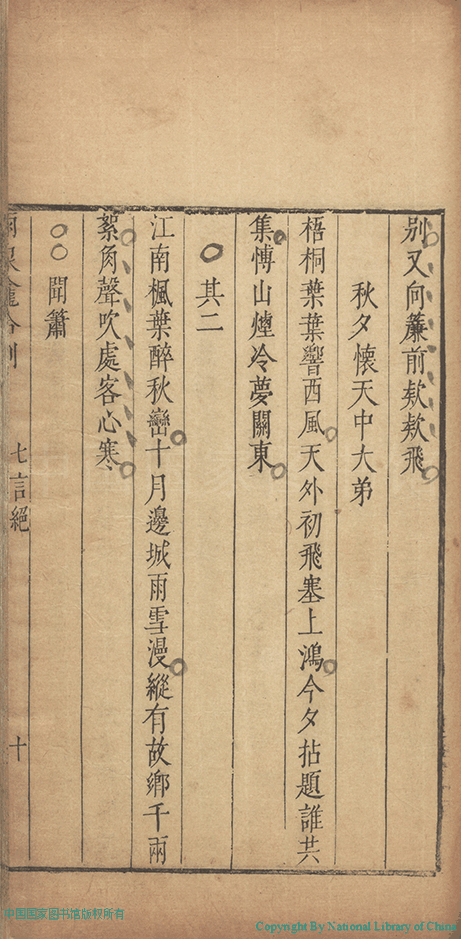 别又向簾前欸欸飛
秋夕懷天中大弟
梧桐葉葉響西風天外初飛塞上鴻今夕拈題誰共
集愽山煙冷夢關東
其二
江南楓葉醉秋巒十月邊城雨雪漫縱有故鄉千兩
絮角聲吹處客心寒
聞簫
七言絕
十
中国国家图书馆版权所有
Copyright By National Library of China